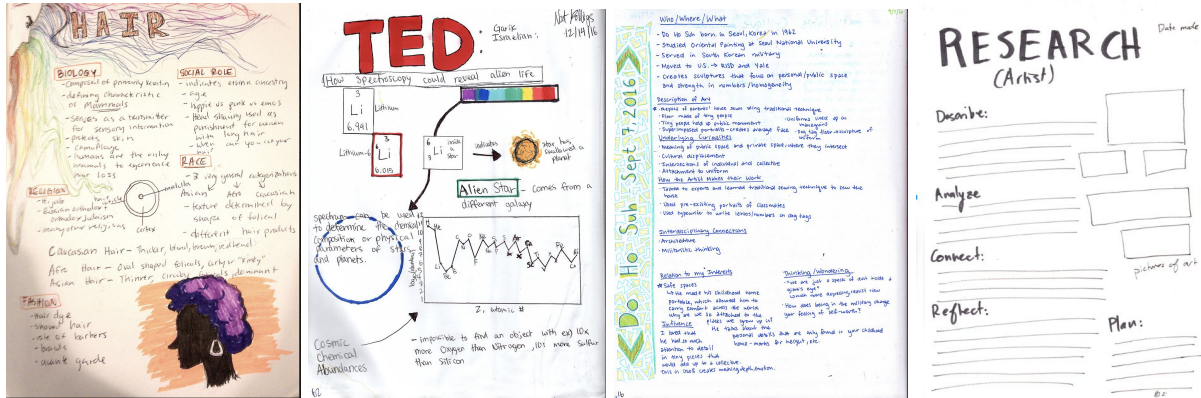 HAIR
BIOLOGY
- composed of primarily keratin
- defining characteristic
of mammals
- serves as a transmitter
for sensory information
- protects skin
- camouflage
- humans are the only
mammals to experience
hair loss
SOCIAL ROLE
- indicates ethnic ancestry
- age
- hippie vs punk vs emos
- Head shaving used as
punishment for women
with long hair
- when can you cut your
hair
RACE
- 3 very general categorizations
Asian Afro Caucasian
- texture determined by
shape of folical
- different hair products
RELIGION
- Hijab
orthodox Judaism
- many other religions
medulla
cortex
Caucasian Hair - Thicker, blond, brown, red
Afro Hair - Oval shaped folicals, curly or "kinky"
Asian Hair - Thinner, dominant
FASHION
- Hair dye
- shaved hair
- role of barbers
- braids
- avant garde
TED:
Garik
Israelian:
Nat
12/14/16
How Spectroscopy could reveal alien life
3
Li
6.941
Lithium
Lithium-6
3
Li
6.015
Li
inside
a
star
indicates
star has
swallowed a
planet
Alien Star - comes from a
different galaxy
spectrum can be used
to determine the chemical
composition or physical
parameters of stars
and planets.
Z, atomic #
Cosmic
Chemical
Abundances
- impossible to find an object with ex) 10x
more Oxygen than Nitrogen, 10s more sulfur
than silicon
62
Do Ho Suh Sept 7, 2016
Who/Where/What
- Do Ho Suh born in Seoul, Korea in 1962
- Studied Oriental Painting at Seoul National University
- Served in South Korean military
- Moved to U.S. → RISD and Yale
- Creates sculptures that focus on personal/public space
and strength in numbers/homogeneity
Description of Art
- Replica of parents' house sewn using traditional technique
- Floor made of tiny people
- Tiny people hold up public monument
- Superimposed portraits - creates average face
- Uniforms lined up on
mannequins
- Dog tag floor - sculpture of
uniform
Underlying Curiosities
- Meaning of public space and private space - where they intersect
- Cultural displacement
- Intersections of individual and collective
- Attachment to uniform
How the Artist Makes their Work
- Talked to experts and learned traditional sewing technique to sew the
house
- Used pre-existing portraits of classmates
- Used typewriter to write letters/numbers on dog tags
Interdisciplinary Connections
- Architecture
- Militaristic thinking
Relation to my Interests
* Safe spaces
↳ He made his childhood home
portable, which allowed him to
carry comfort across the world
why are we so attached to the
places we grew up in?
Thinking/Wondering
- "we are just a speck of dust inside a
giant's eye"
- How does being in the military change
your feeling of self-worth?
Influence
I loved that
he had so much
attention to detail
in tiny pieces that
would add up to a collective.
He talks about the
personal details that are only found in your childhood
home - marks for height, etc.
16
RESEARCH
(Artist)
Date made
Describe:
Analyze
Connect:
Reflect:
pictures of art
Plan: